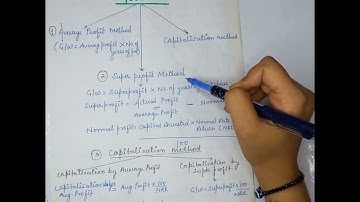 ① Average Profit Method
(G/W = Average profit × No. of
years of pur.
Capitalisation method
② Super profit Method
G/W = Superprofit × No. of years
Superprofit = Actual Profit - Normal
or
Average Profit
Normal profit = Capital Invested × Normal Rate
Return (NRR)
100
③ Capitalisation method
Capitalisation by Average Profit
Capitalisation by
super profit
Capitalisation
Avg. Profit = Avg. Profit × 100
NRR
G/W = Superprofit × 100
NRR